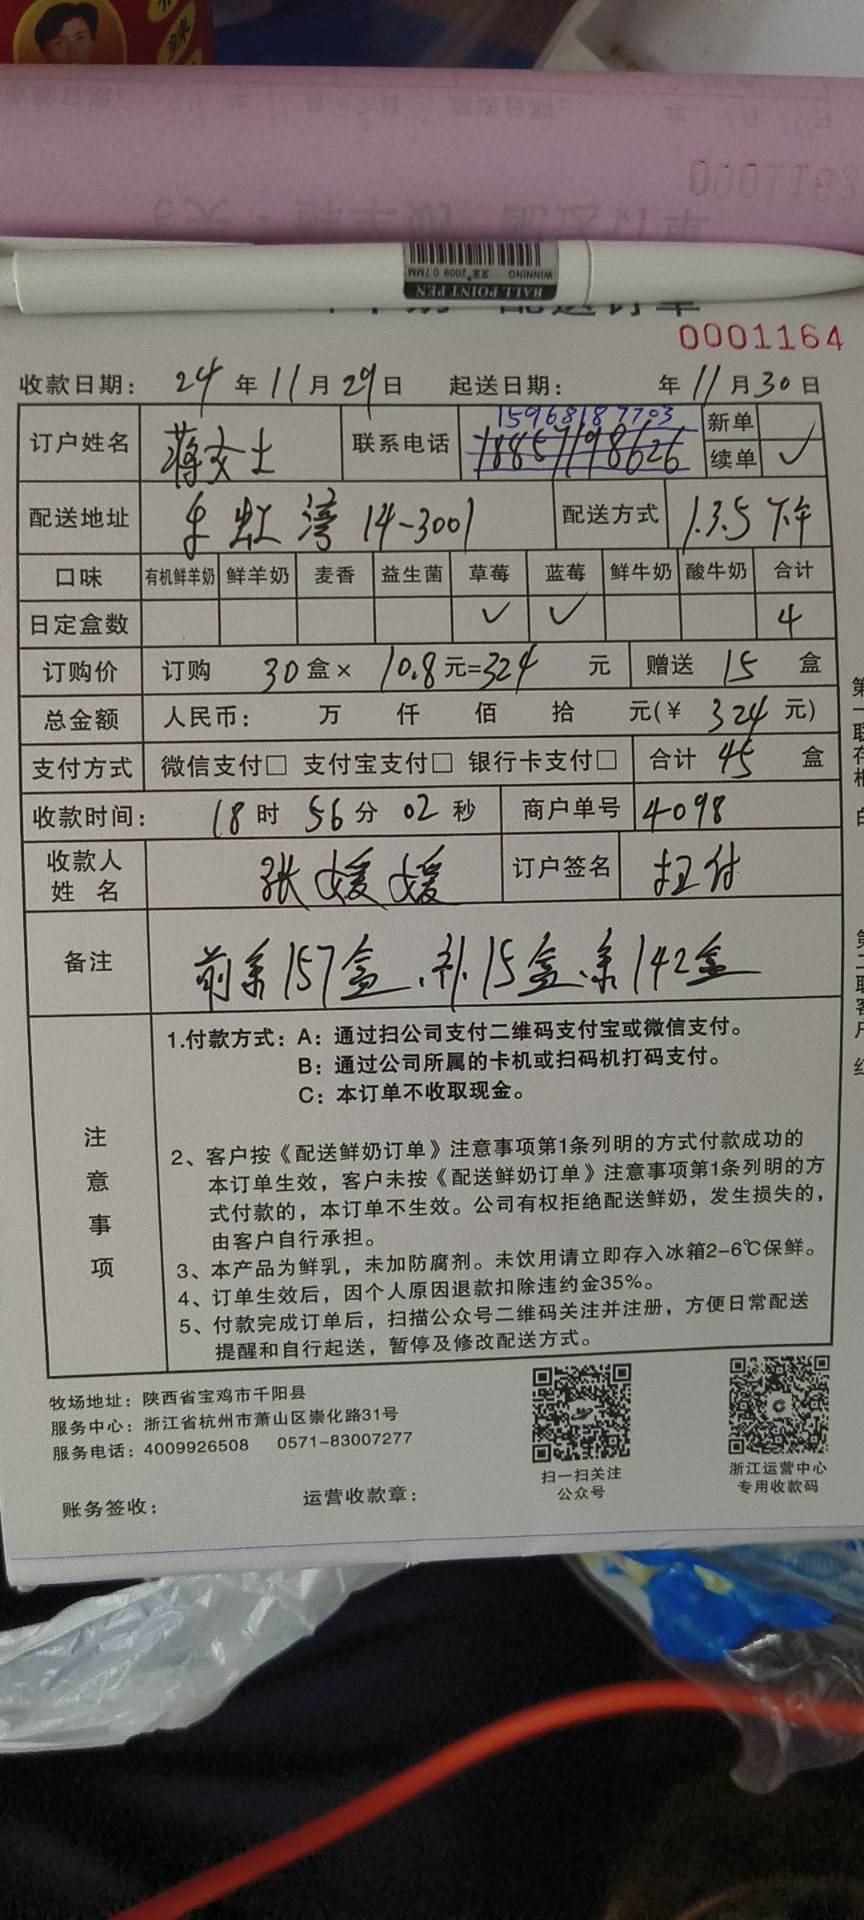 BALL POINT PEN
WINNING 文正®2009 0.7MM
配送订单
0001164
收款日期： 24 年 11 月 29 日 起送日期： 年 11 月 30 日
订户姓名 蒋女士 联系电话 15968187703 18857198626 新单
续单 ✓
配送地址 虹湾 14-3001 配送方式 1.3.5下午
口味 有机鲜羊奶 鲜羊奶 麦香 益生菌 草莓 蓝莓 鲜牛奶 酸牛奶 合计
日定盒数 ✓ ✓ 4
订购价 订购 30 盒× 10.8 元=324 元 赠送 15 盒
总金额 人民币： 万 仟 佰 拾 元(¥ 324 元)
支付方式 微信支付□ 支付宝支付□ 银行卡支付□ 合计 45 盒
收款时间： 18 时 56 分 02 秒 商户单号 4098
收款人姓名 张媛媛 订户签名 扫付
备注 前余157盒、补15盒、余142盒
注意事项
1.付款方式：A：通过扫公司支付二维码支付宝或微信支付。
B：通过公司所属的卡机或扫码机打码支付。
C：本订单不收取现金。
2、客户按《配送鲜奶订单》注意事项第1条列明的方式付款成功的
本订单生效，客户未按《配送鲜奶订单》注意事项第1条列明的方
式付款的，本订单不生效。公司有权拒绝配送鲜奶，发生损失的，
由客户自行承担。
3、本产品为鲜乳，未加防腐剂。未饮用请立即存入冰箱2-6℃保鲜。
4、订单生效后，因个人原因退款扣除违约金35%。
5、付款完成订单后，扫描公众号二维码关注并注册，方便日常配送
提醒和自行起送，暂停及修改配送方式。
第一联存根 白
第二联客户 红
牧场地址：陕西省宝鸡市千阳县
服务中心：浙江省杭州市萧山区崇化路31号
服务电话：4009926508 0571-83007277
扫一扫关注
公众号
浙江运营中心
专用收款码
账务签收： 运营收款章：